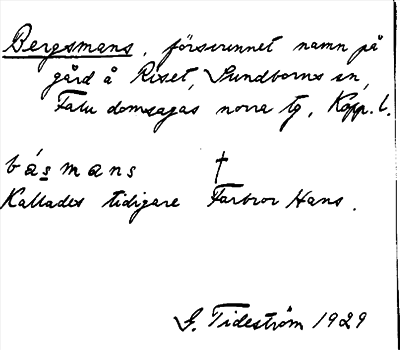 Bergsmans, försvunnet namn på
gård å Riset, Sundborns sn,
Falu domsagas norra tg, Kopp. l.
básmans †
Kallades tidigare Farbror Hans.
G. Tideström 1929